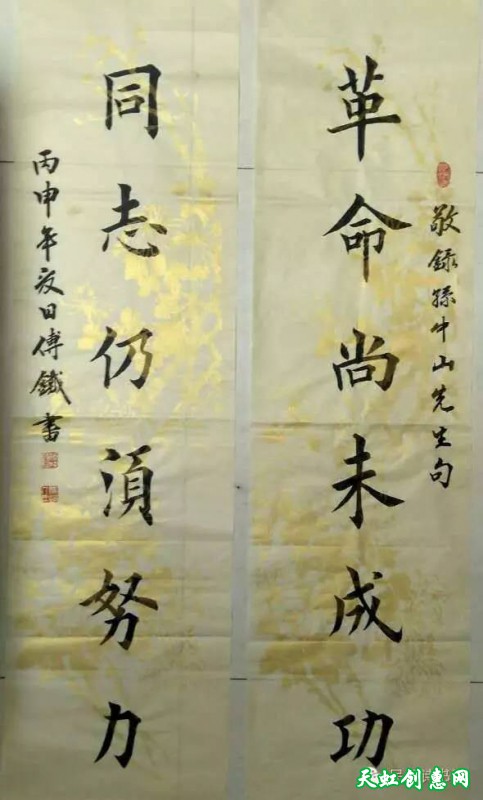 敬錄孫中山先生句
革命尚未成功
同志仍須努力
丙申年夏日傅鐵書
天虹创惠网